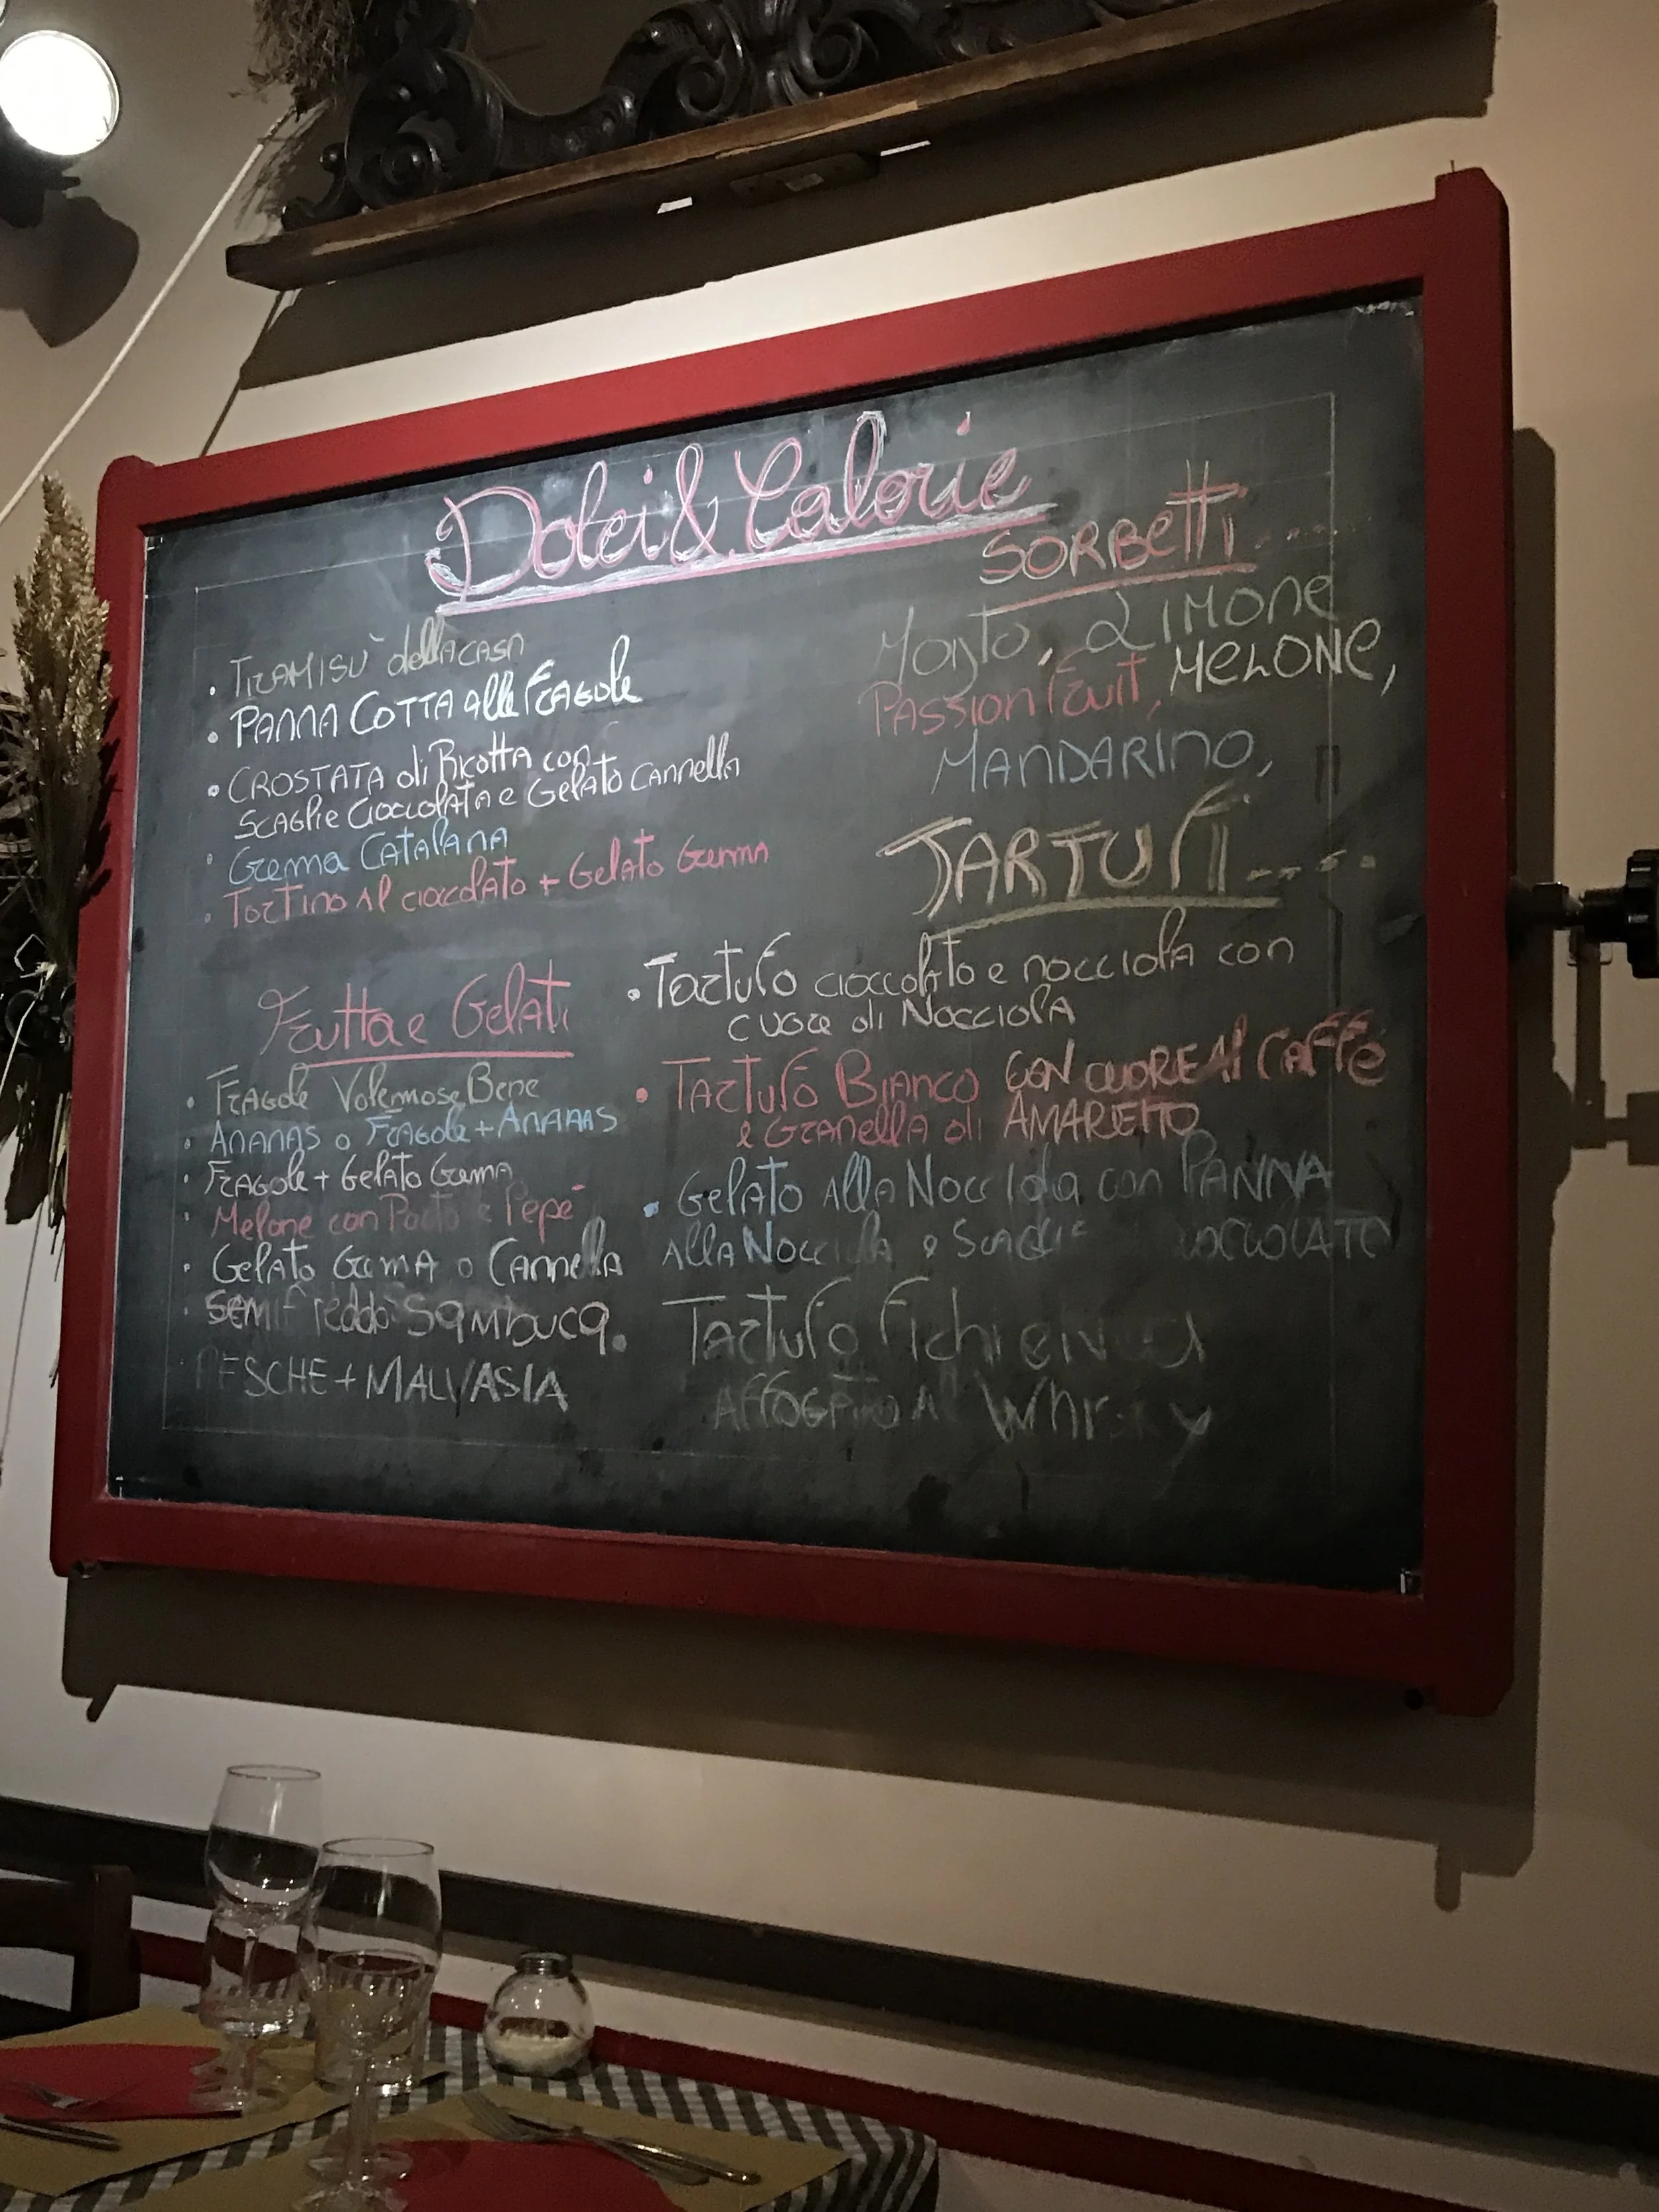 Dolci & Calorie
• TIRAMISÙ della CASA
• PANNA COTTA alle FRAGOLE
• CROSTATA di RICOTTA con
SCAGLIE CIOCCOLATA e GELATO CANNELLA
• Crema CATALANA
• TORTINO AL CIOCCOLATO + GELATO Crema
Frutta e Gelati
• FRAGOLE Volemmose Bene
• ANANAS o FRAGOLE + ANANAS
• FRAGOLE + GELATO Crema
• Melone con Porto e Pepe
• GELATO CREMA o CANNELLA
• SEMIFREDDO SAMBUCA.
PESCHE + MALVASIA
SORBETTI.....
LIMONE
PASSION Fruit, MELONE,
MANDARINO,
TARTUFI.....
• TARTUFO CIOCCOLATO e NOCCIOLA con
CUORE di NOCCIOLA
• TARTUFO BIANCO CON CUORE AL CAFFÈ
e GRANELLA di AMARETTO
• GELATO ALLA NOCCIOLA con PANNA
ALLA NOCCIOLA e SCAGLIE CIOCCOLATO
TARTUFO
AFFOGATO AL WHISKY